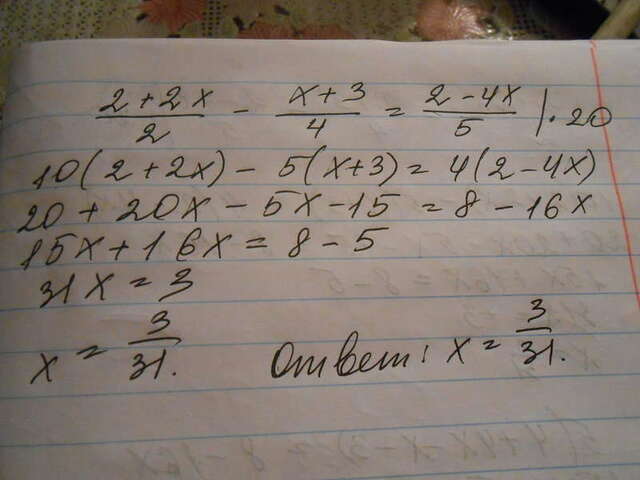 (2+2x)/2 - (x+3)/4 = (2-4x)/5 |·20
10(2+2x) - 5(x+3) = 4(2-4x)
20+20x-5x-15 = 8-16x
15x+16x = 8-5
31x = 3
x = 3/31. Ответ: x = 3/31.